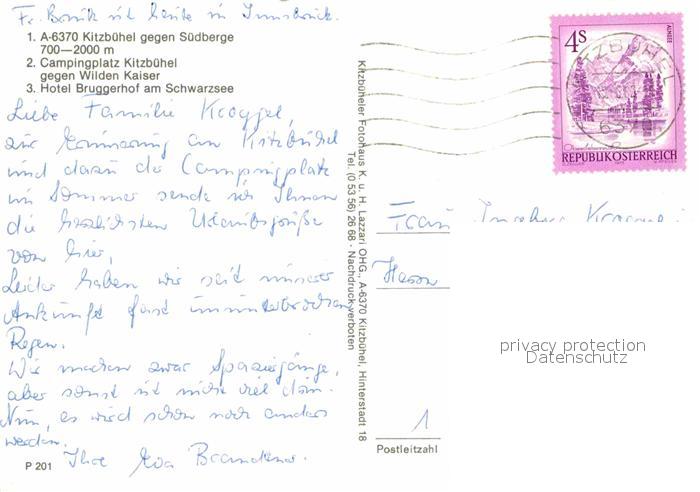 Fr. Bonik ist heute in Innsbruck.
1. A-6370 Kitzbühel gegen Südberge
700—2000 m
2. Campingplatz Kitzbühel
gegen Wilden Kaiser
3. Hotel Bruggerhof am Schwarzsee
Liebe Familie
zur Erinnerung an Kitzbühel
und dazu die Campingplatz
im Sommer sende ich Ihnen
die herzlichsten Urlaubsgrüße
von hier,
Leider haben wir seit unserer
Ankunft fast ununterbrochen
Regen.
Wir machen zwar Spaziergänge,
aber sonst ist nicht viel drin.
Nun, es wird schon noch anders
werden.
Ihre Eva
P 201
Kitzbüheler Fotohaus K. u. H. Lazzari OHG., A-6370 Kitzbühel, Hinterstadt 18
Tel. (0 53 56) 26 68 - Nachdruck verboten
4S
ALMSEE
KITZBÜHEL
REPUBLIK ÖSTERREICH
Frau
privacy protection
Datenschutz
1
Postleitzahl